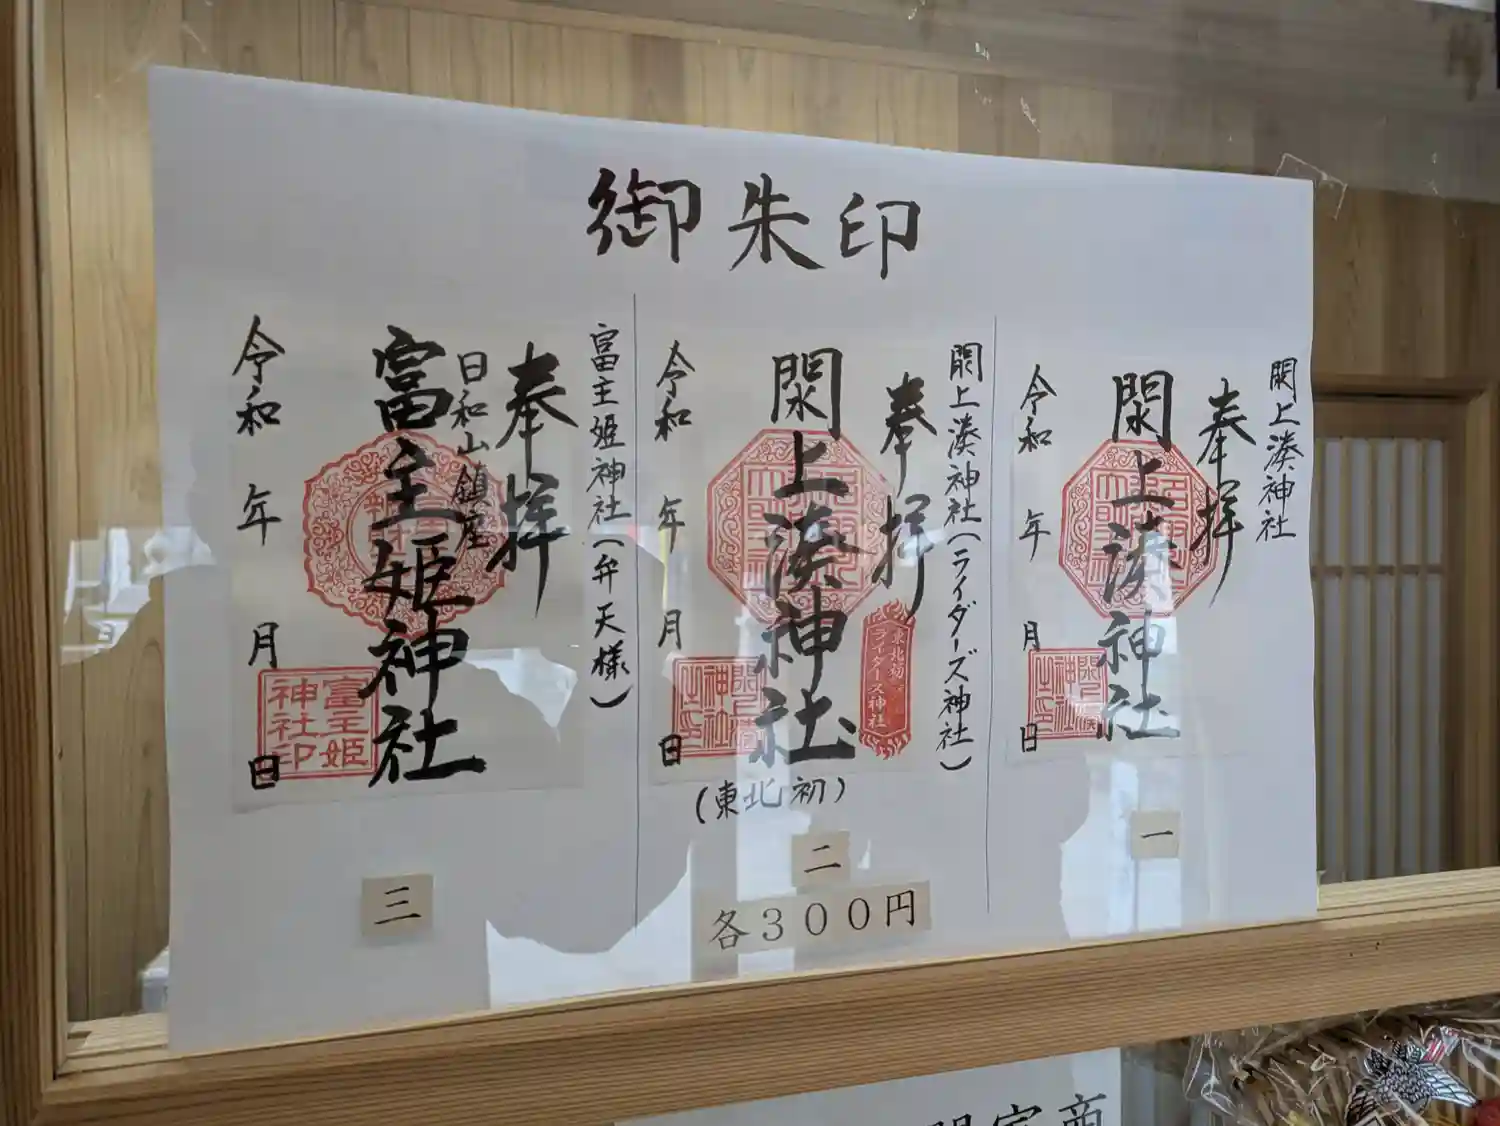 御朱印
閖上湊神社
奉拝
閖上湊神社
令和 年 月 日
一
閖上湊神社(ライダーズ神社)
奉拝
東北初
ライダース神社
閖上湊神社
令和 年 月 日
(東北初)
二
富主姫神社(弁天様)
奉拝
日和山鎮座
富主姫神社
富主姫
神社印
令和 年 月 日
三
各300円